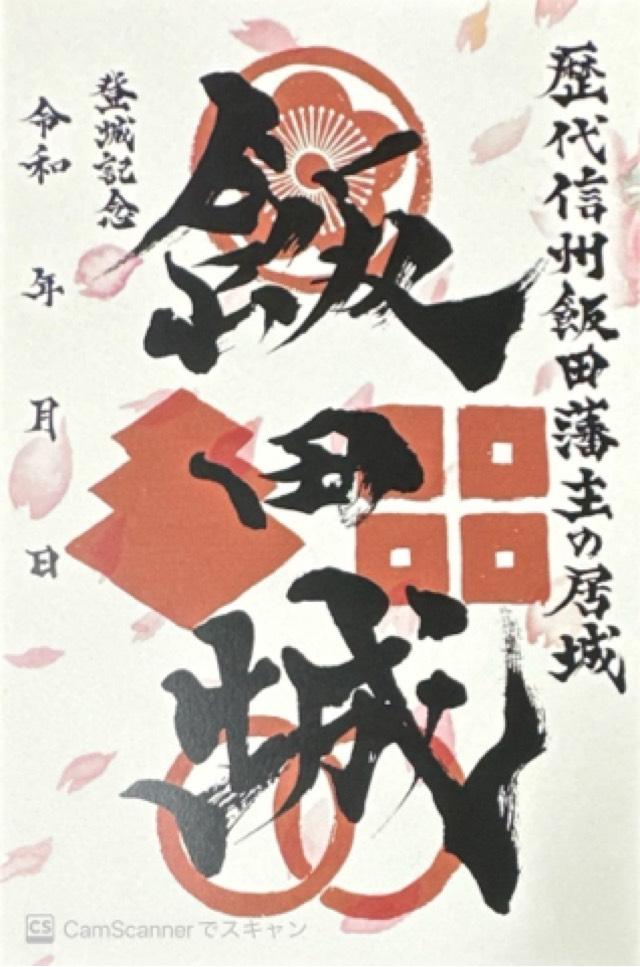 歴代信州飯田藩主の居城
飯田城
登城記念
令和 年 月 日
CS CamScannerでスキャン